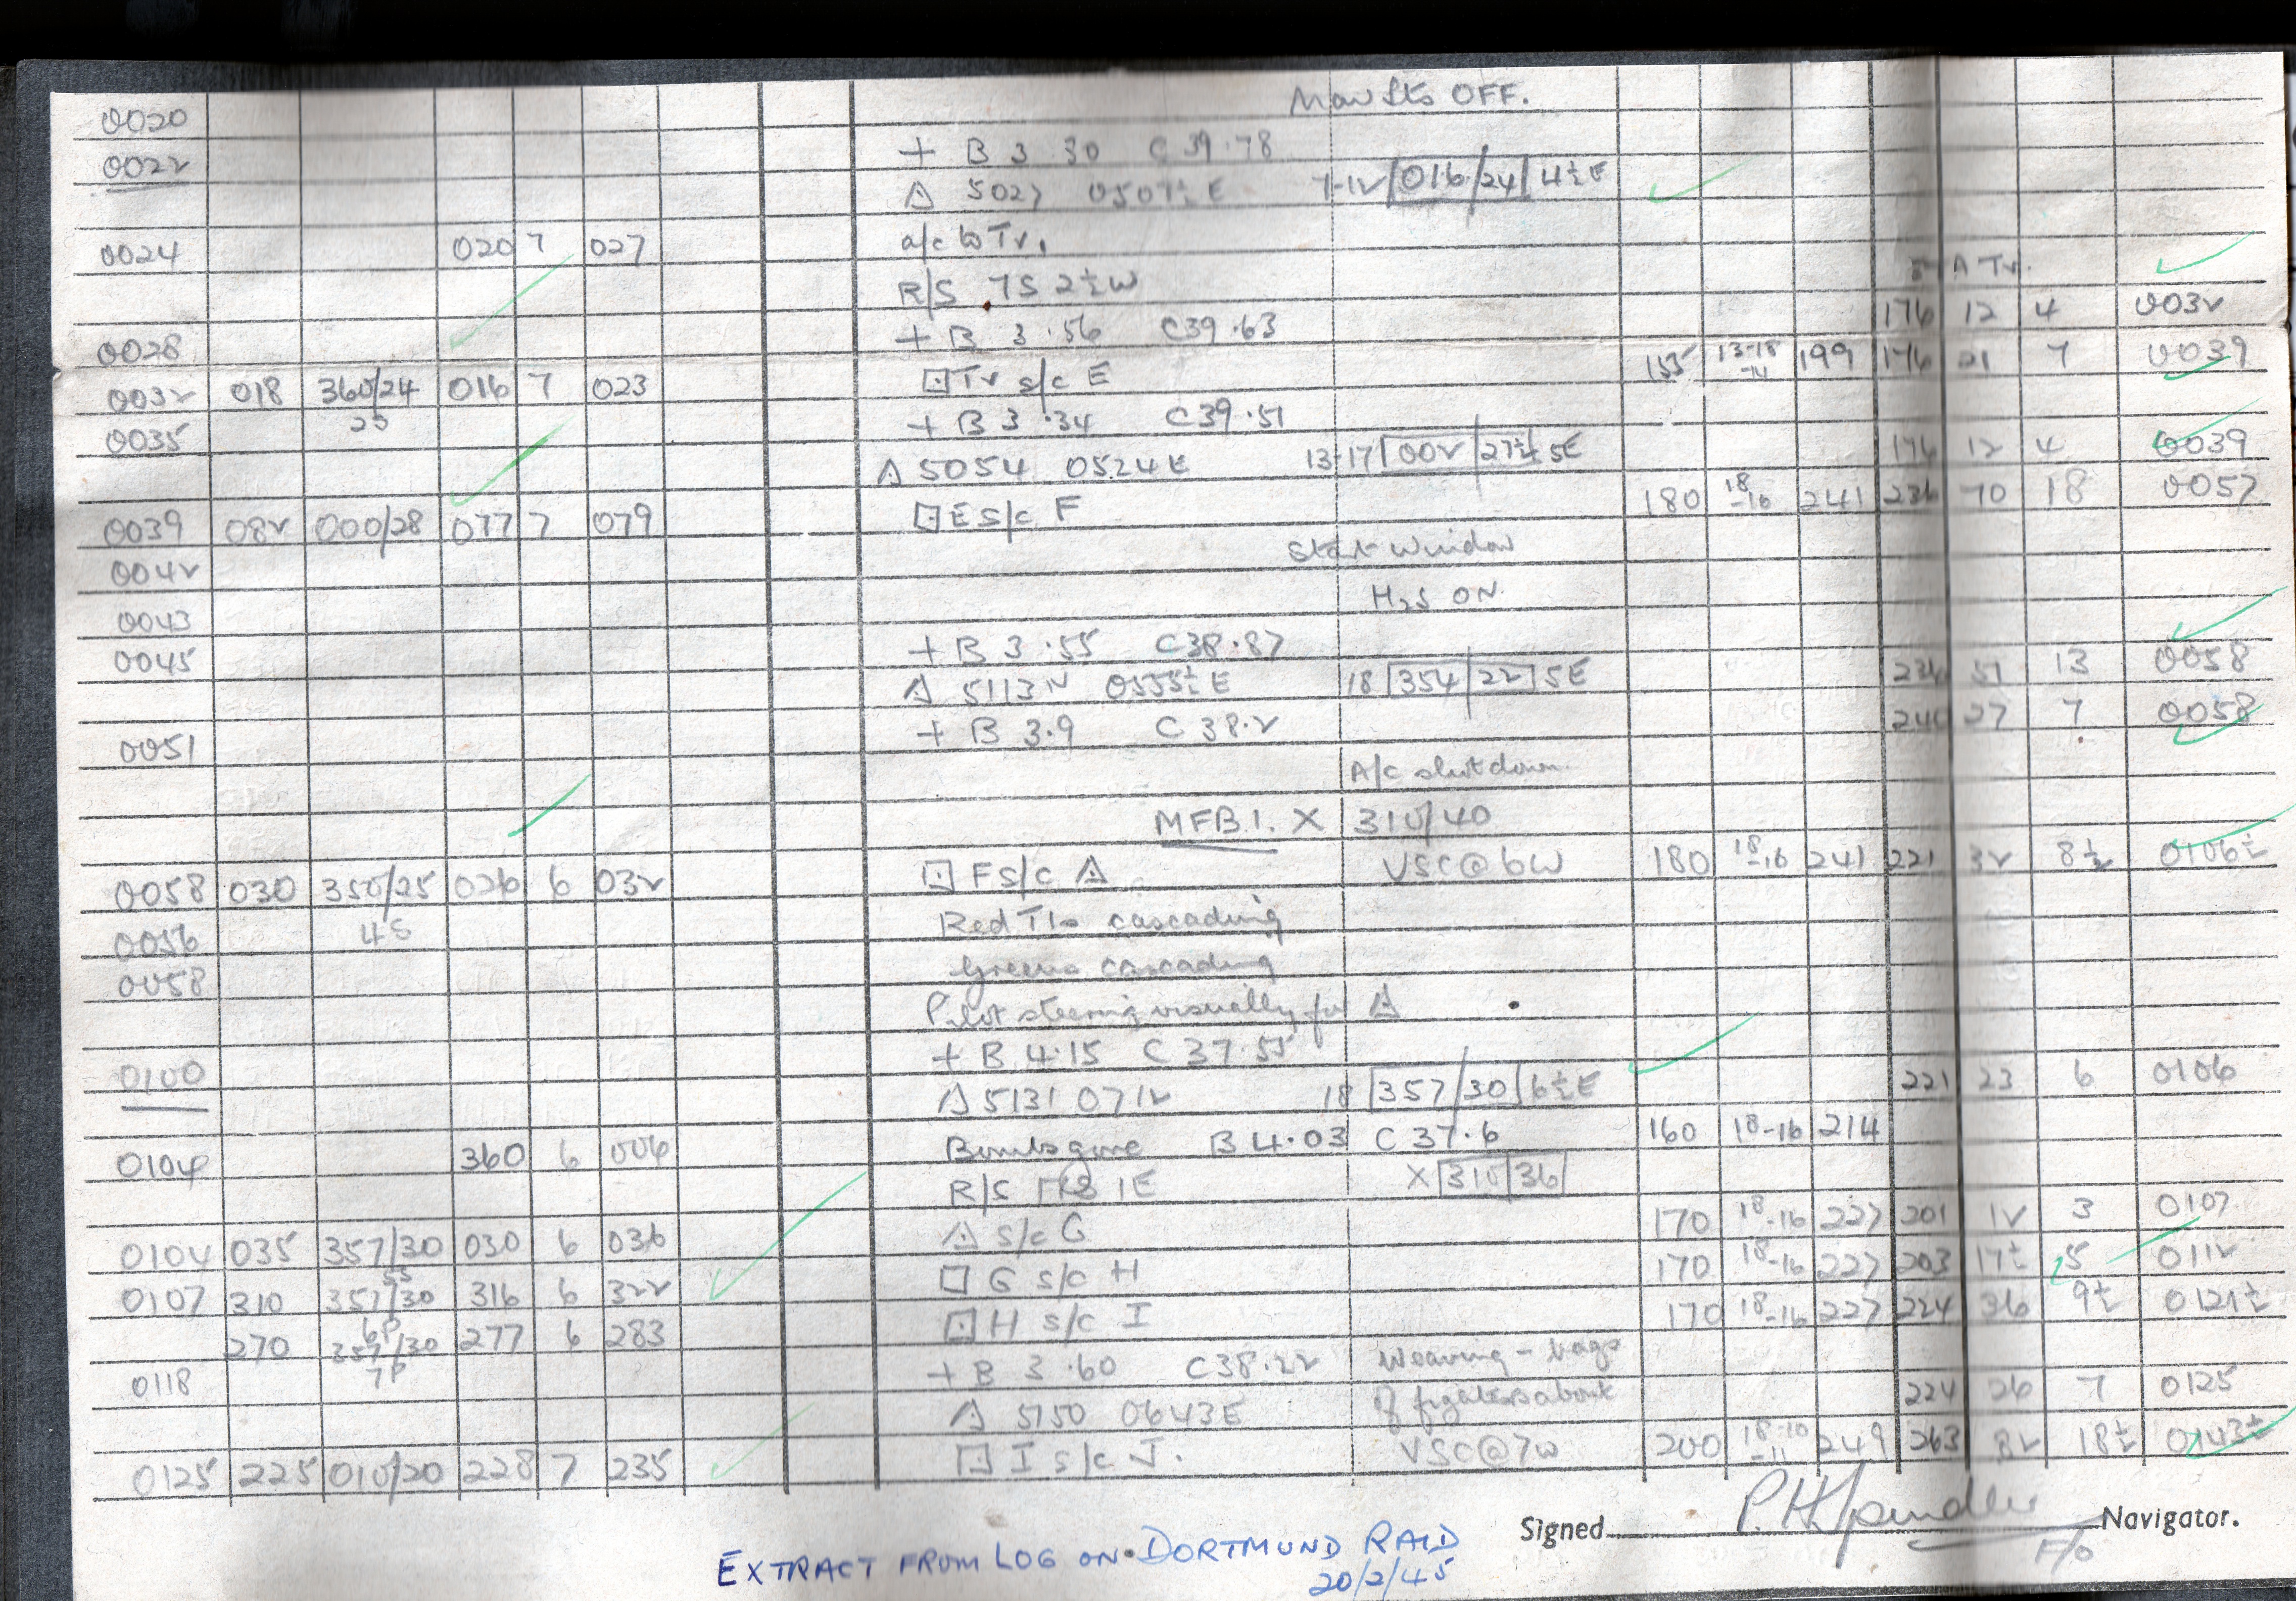 0020 Nav Lts OFF.
0022 + B 3 .30 C 39.78
△ 5027 0507½E 7-12 016/24 4½E
0024 020 7 027 a/c to Tr.
R/S 7S 2½W E A Tr.
0028 + B 3 .56 C39.63 176 12 4 0032
0032 018 360/24 016 7 023 ⊡ Tr s/c E 155 13-18 -14 199 176 21 7 0039
0035 + B 3 .34 C39.51
△ 5054 0524E 13-17 002/27½ 5E 176 12 4 0039
0039 082 000/28 077 7 079 ⊡ E s/c F 180 18 -16 241 236 70 18 0057
0042 Start Window
0043 H2S ON
0045 + B 3 .55 C38.87
△ 5113N 0555½E 18 354/22 5E 236 51 13 0058
0051 + B 3.9 C 38.2 240 27 7 0058
A/c shot down.
MFB1. X 310/40
0058 030 350/25 026 6 032 ⊡ F s/c △ VSC@6W 180 18 -16 241 221 32 8½ 0106½
0056 4S Red TIs cascading
0058 Greens cascading
Pilot steering visually for △
0100 + B 4.15 C 37.55
△ 5131 0712 18 357/30 6½E 221 23 6 0106
0104 360 6 006 Bombs gone B 4.03 C 37.6 160 18-16 214
R/S 1E X 310/36
0104 035 357/30 030 6 036 △ s/c G 170 18-16 227 201 12 3 0107
0107 310 357/30 316 6 322 ⊡ G s/c H 170 18-16 227 203 17½ 5 0112
6P
270 357/30 277 6 283 ⊡ H s/c I 170 18-16 227 224 36 9½ 0121½
7P
0118 + B 3 .60 C38.22 Weaving - bags
△ 5150 0643E of fighters about 224 26 7 0125
0125 225 010/20 228 7 235 ⊡ I s/c J. VSC@7W 200 18-10 -11 249 263 82 18½ 0143½
Signed P.H.Spindler Navigator.
F/O
EXTRACT FROM LOG ON DORTMUND RAID
20/2/45